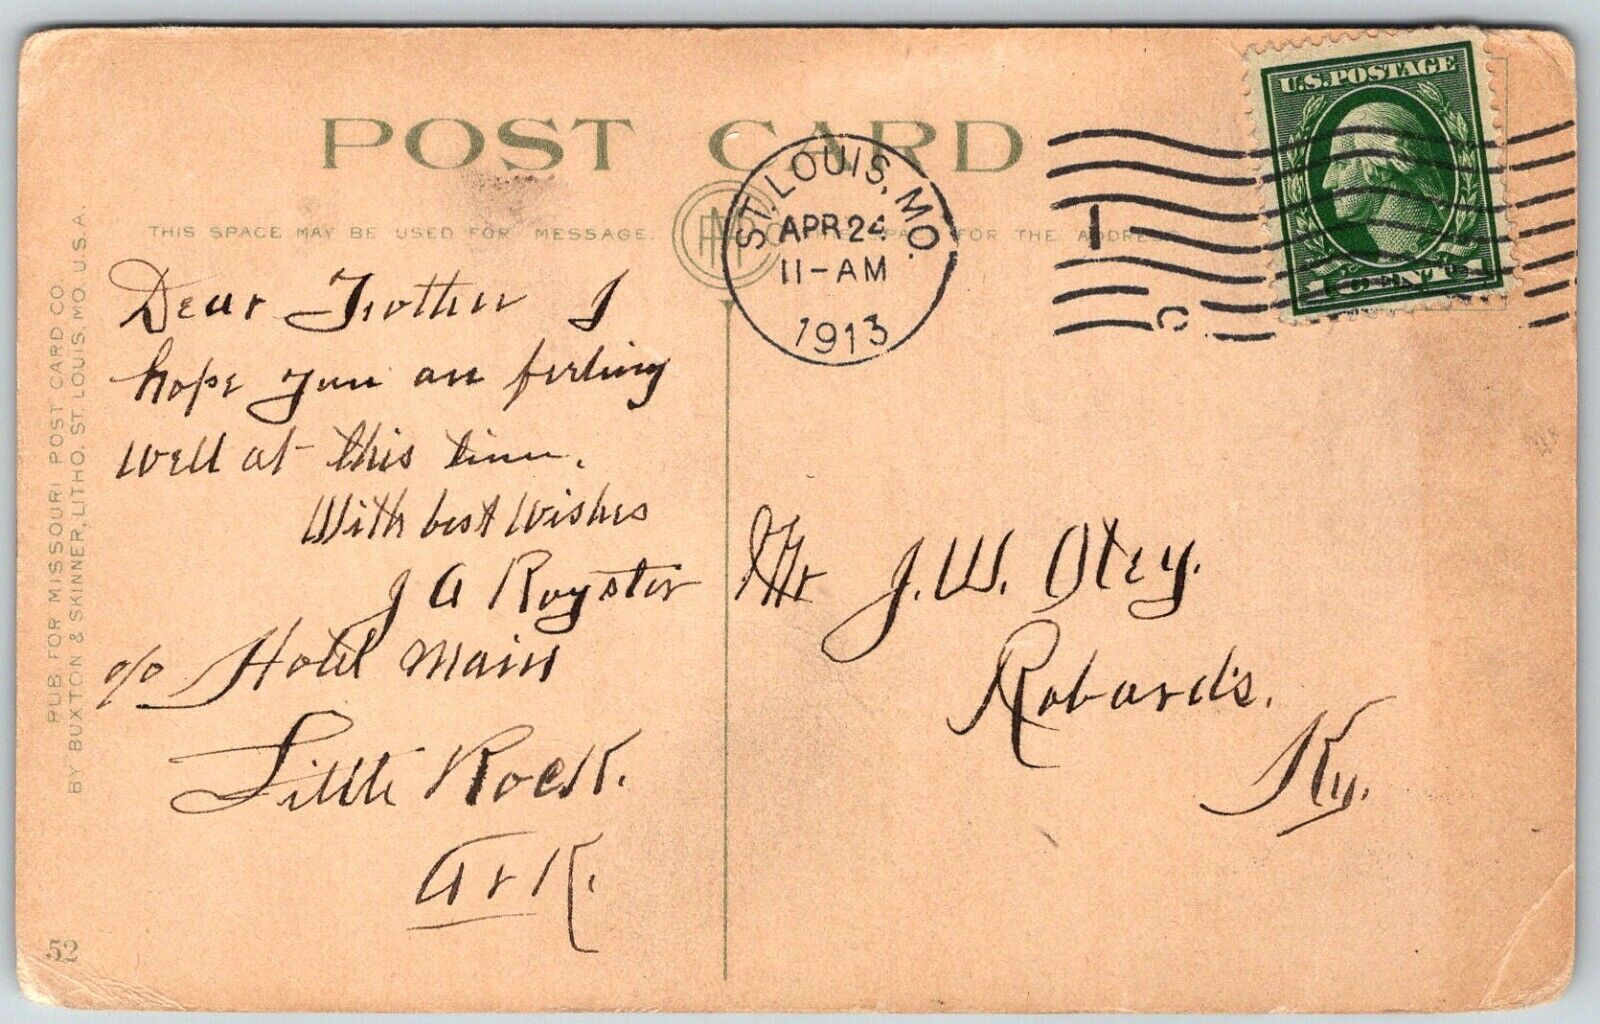 POST CARD
THIS SPACE MAY BE USED FOR MESSAGE.
FOR THE ADDRESS
ST. LOUIS, MO.
APR 24
11-AM
1913
1
C
U.S. POSTAGE
PUB. FOR MISSOURI POST CARD CO.
BY BUXTON & SKINNER, LITHO. ST. LOUIS, MO. U.S.A.
Dear Trotter I
hope you are feeling
well at this time.
With best wishes
J A Royster
c/o Hotel Main
Little Rock.
Ark.
Mr J. W. Otey.
Robards.
Ky.
52